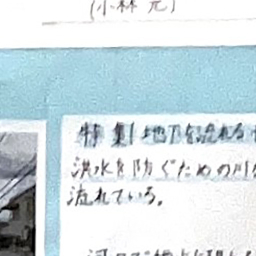 (小林 元)
特集 地下を流れる
洪水を防ぐための川が
流れている。